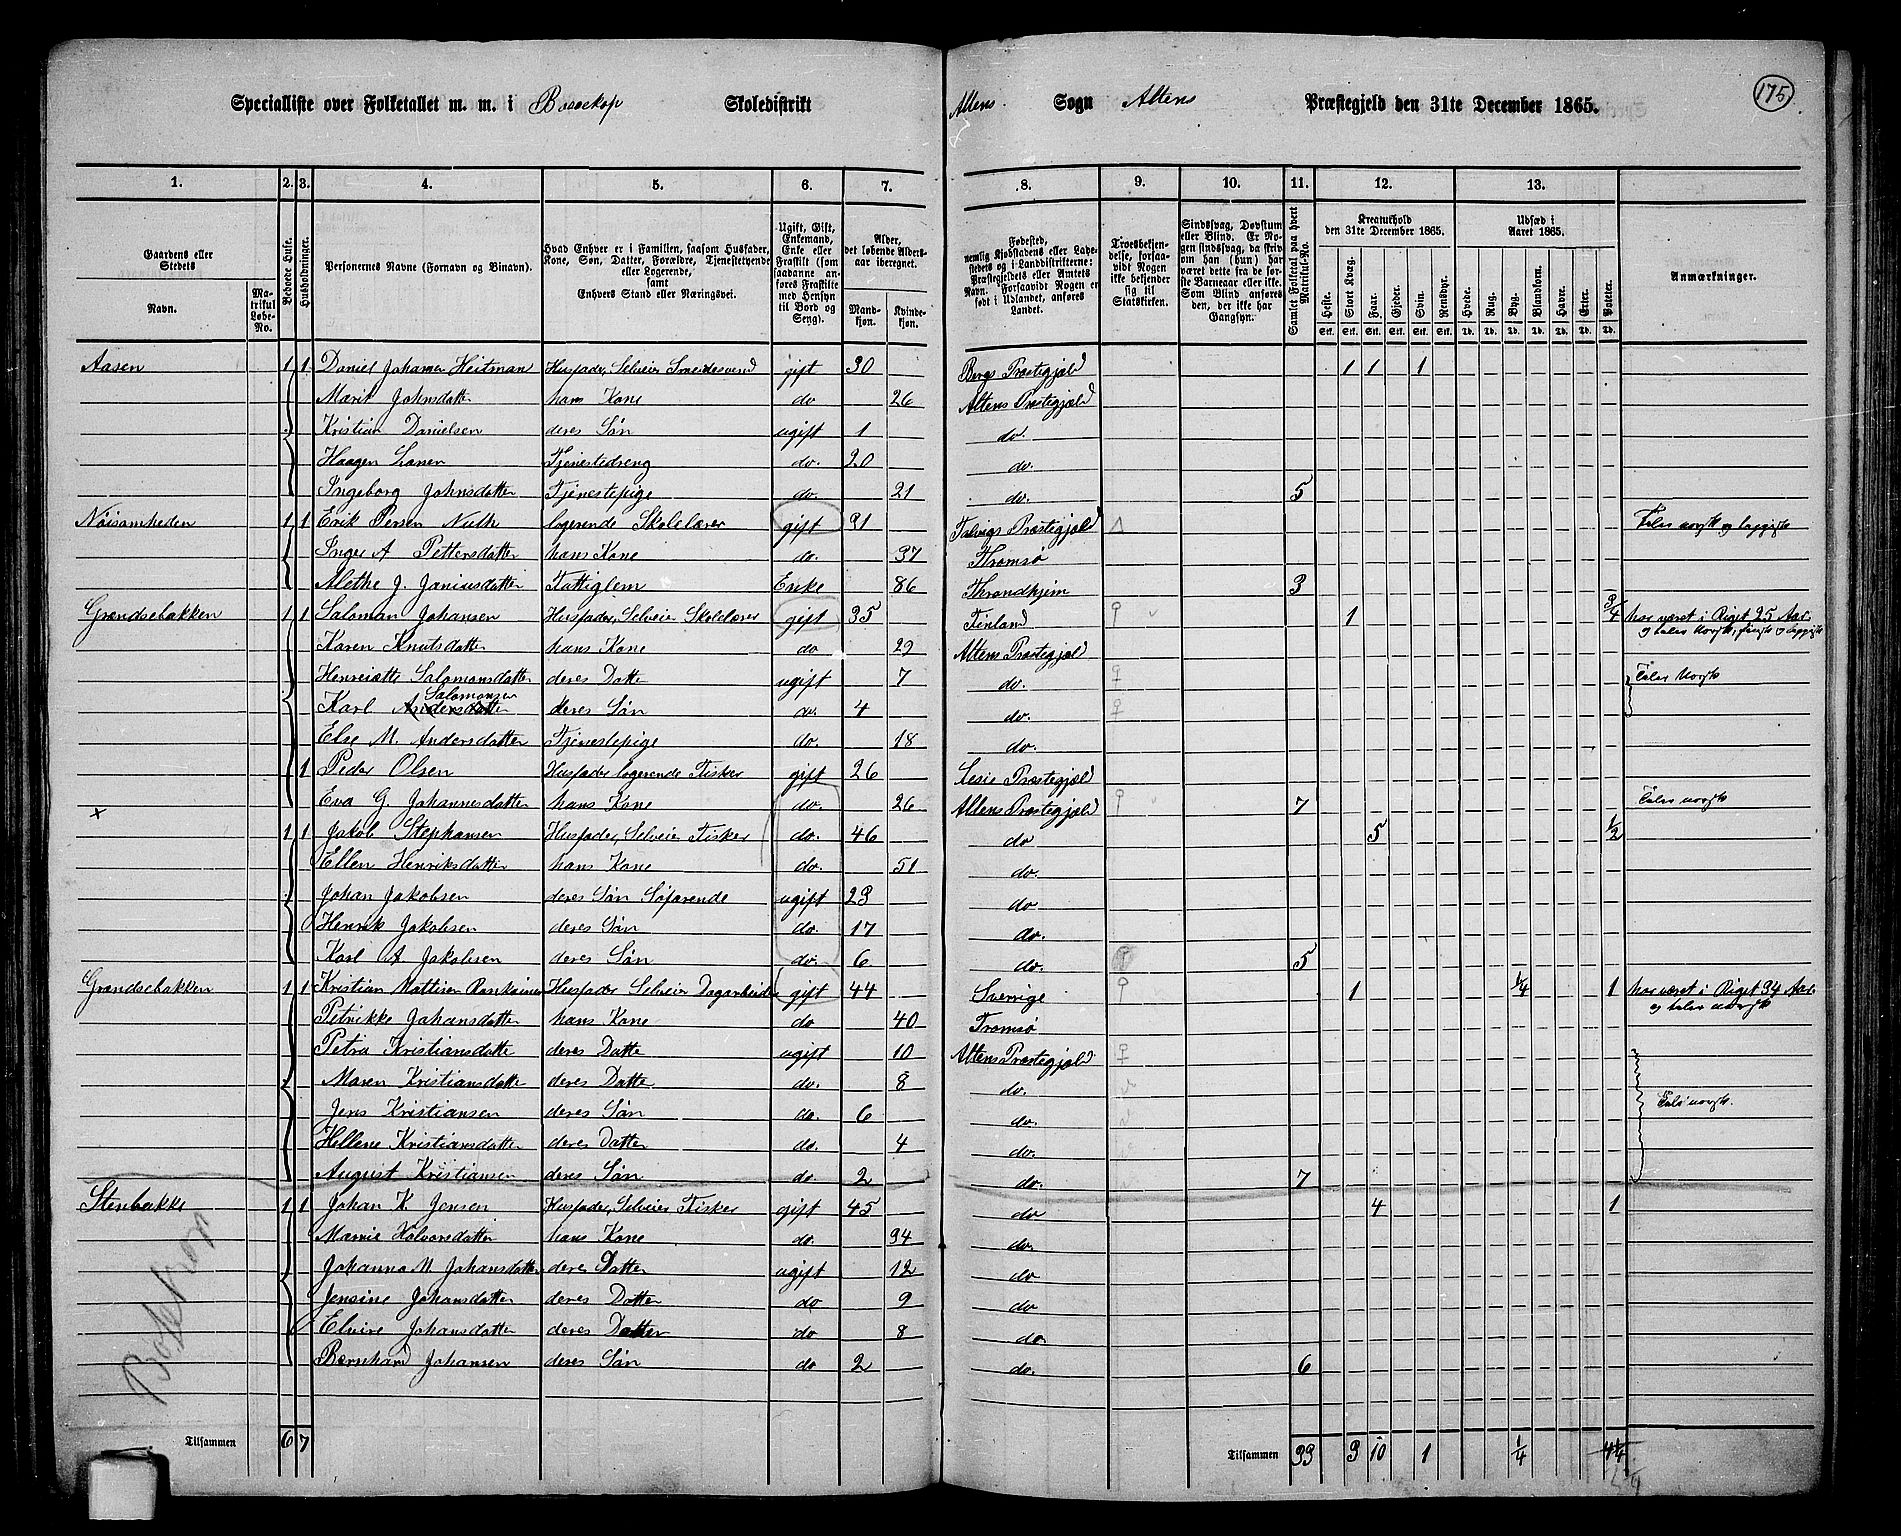 Specialliste over Folketallet m. m. i Bossekop Skoledistrikt Altens Sogn Altens Præstegjeld den 31te December 1865. 175
1. 2. 3. 4. 5. 6. 7. 8. 9. 10. 11. 12. 13.
Gaardens eller Stedets
Navn. Matrikul Løbe-No.
Beboede Huse.
Husholdninger.
Personernes Navne (Fornavn og Binavn).
Hvad Enhver er i Familien, saasom Husfader, Kone, Søn, Datter, Forældre, Tjenestetyende eller Logerende, samt Enhvers Stand eller Næringsvei.
Ugift, Gift, Enkemand, Enke eller Fraskilt (som saadanne anføres Fraskilte med Hensyn til Bord og Seng).
Alder, det løbende Aldersaar iberegnet.
Mandkjøn. Kvindekjøn.
Fødested, nemlig Kjøbstadens eller Ladestedets og i Landdistrikterne: Præstegjeldets eller Amtets Navn. Forsaavidt Nogen er født i Udlandet, anføres Landet.
Troesbekjendelse, forsaavidt Nogen ikke bekjender sig til Statskirken.
Sindssvag, Døvstum eller Blind. Er Nogen sindssvag, da skrives om han (hun) har været dette fra de første Barneaar eller ikke. Som Blind anføres den, der ikke har Gangsyn.
Samlet Folketal paa hvert Matrikul-No.
Kreaturhold den 31te December 1865.
Heste. Stort Kvæg. Faar. Gjeder. Svin. Rensdyr.
Udsæd i Aaret 1865.
Hvede. Rug. Byg. Blandkorn. Havre. Erter. Poteter.
Anmærkninger.
Aasen 1 1 Daniel Johansen Heitman Husfader, Selveier Smedesvend gift 30 Bergs Præstegjæld 1 1 1
Marit Johnsdatter hans Kone do 26 Altens Præstegjæld
Kristian Danielsen deres Søn ugift 1 do.
Haagen Larsen Tjenestedreng do. 20 do.
Ingeborg Johnsdatter Tjenestepige do. 21 do. 5
Nøisomheden 1 1 Erik Persen Nuth logerende Skolelærer gift 31 Talvigs Præstegjæld Taler norsk og lappisk
Inger A Pettersdatter hans Kone do. 37 Thromsø
Alethe J. Janiusdatter Fattiglem Enke 86 Throndhjem 3
Grændsebakken 1 1 Salomon Johansen Husfader, Selveier Skolelærer gift 35 Finland 1 3/4 har været i Riget 25 Aar
og taler norsk, finsk og lappisk
Karen Knutsdatter hans Kone do 29 Altens Præstegjæld
Henriette Salomonsdatter deres Datter ugift 7 do. Taler Norsk
Salomonsen
Karl Andersdatter deres Søn do. 4 do.
Else M. Andersdatter Tjenestepige do. 18 do.
1 Peder Olsen Husfader logerende Fisker gift 26 Lesje Præstegjæld
Eva G. Johannesdatter hans Kone do. 26 Altens Præstegjæld 7 Taler norsk
x 1 1 Jakob Stephansen Husfader, Selveier Fisker do. 46 do 5 1/2
Ellen Henriksdatter hans Kone do. 51 do.
Johan Jakobsen deres Søn Søfarende ugift 23 do
Henrik Jakobsen deres Søn do. 17 do.
Karl A Jakobsen deres Søn do. 6 do. 5
Grændsebakken 1 1 Kristian Mattisen Husfader Selveier Dagarbeider gift 44 Sverrige 1 1/4 1 har været i Riget 34 Aar
og taler norsk
Petrikke Johansdatter hans Kone do 40 Tromsø
Petra Kristiansdatter deres Datter ugift 10 Altens Præstegjæld
Maren Kristiansdatter deres Datter do. 8 do.
Jens Kristiansen deres Søn do. 6 do. Taler norsk.
Hellene Kristiansdatter deres Datter do. 4 do.
August Kristiansen deres Søn do. 2 do. 7
Stenbakke 1 1 Johan K. Jensen Husfader, Selveier Fisker gift 45 do 4 1
Marie Halvorsdatter hans Kone do. 34 do.
Johanna M. Johansdatter deres Datter ugift 12 do
Jensine Johansdatter deres Datter do 9 do
Elvire Johansdatter deres Datter do 8 do.
Bernhard Johansen deres Søn do 2 do. 6
Tilsammen 6 7 Tilsammen 33 3 10 1 1/4 4 1/4